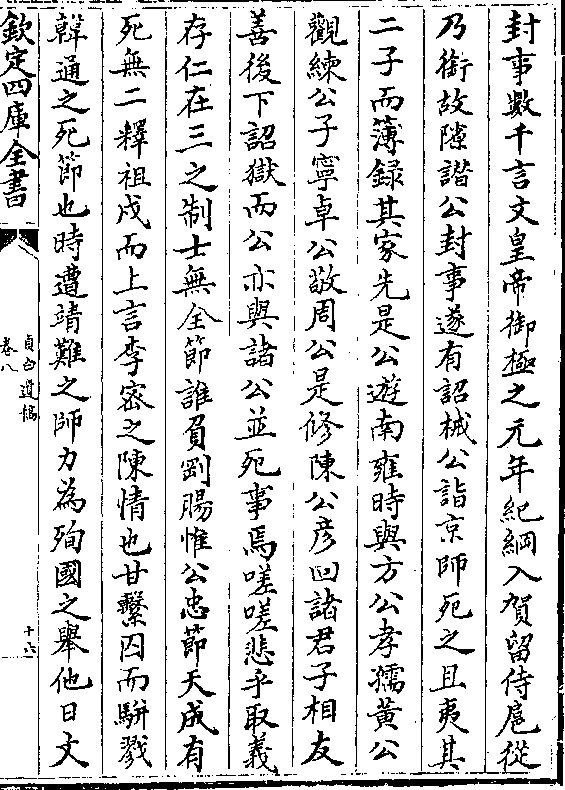 封事數千言文皇帝御極之元年紀綱入賀留侍扈從
乃銜故隙譖公封事遂有詔械公詣京師死之且夷其
二子而薄録其家先是公遊南雍時與方公孝孺黃公
觀練公子寧卓公敬周公是修陳公彦回諸君子相友
善後下詔獄而公亦與諸公並死事焉嗟嗟悲乎取義
存仁在三之制士無全節誰負劉腸惟公忠節天成有
死無二釋祖戍而上言李宻之陳情也甘繫囚而駢戮
韓通之死節也時遭靖難之師力為殉國之舉他日文
欽定四庫全書
貞白遺稿
卷八
十六